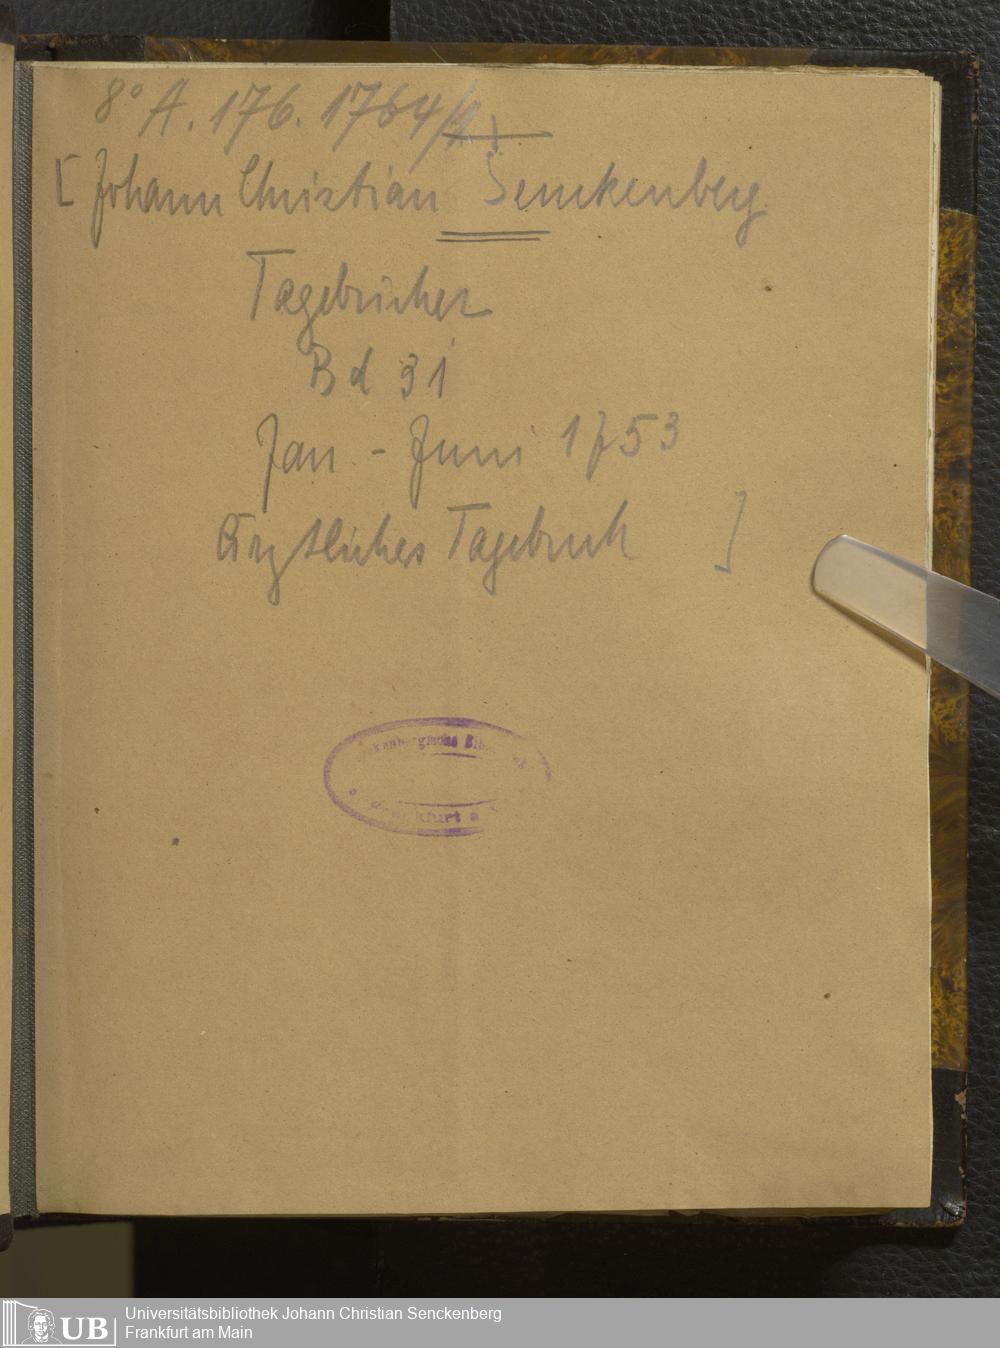 8° A. 176. 1764/
[ Johann Christian Senckenberg
Tagebücher
Bd 31
Jan - Juni 1753
Ärztliches Tagebuch ]
UB
Universitätsbibliothek Johann Christian Senckenberg
Frankfurt am Main